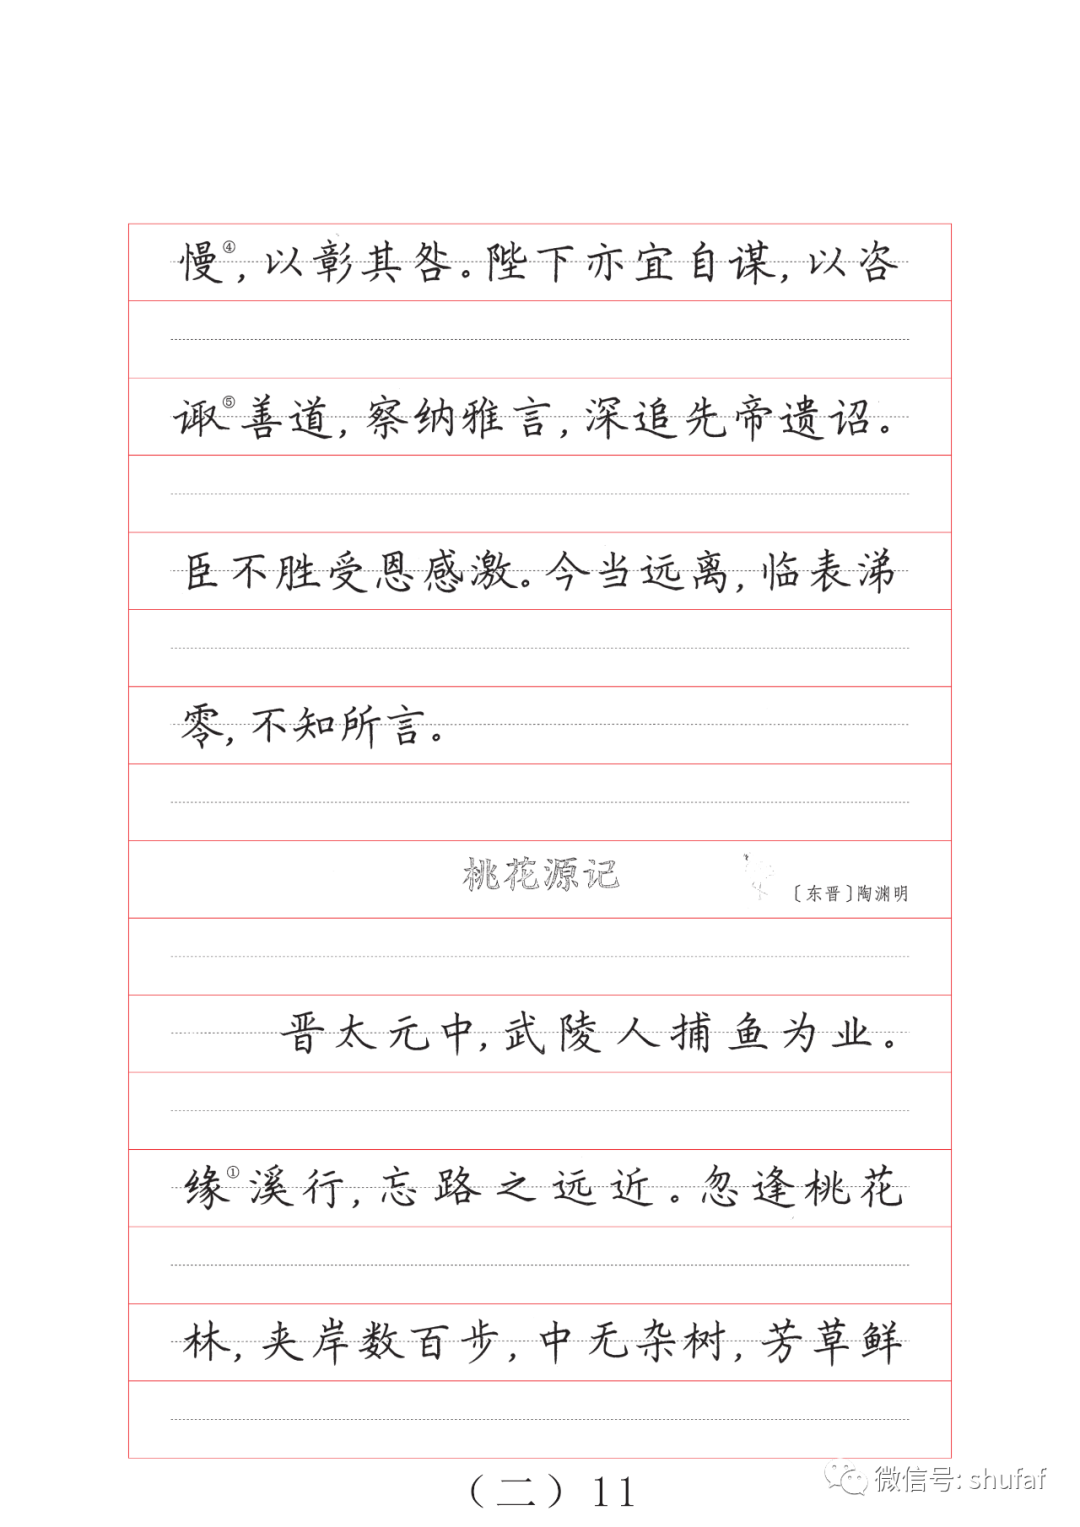 慢④,以彰其咎。陛下亦宜自谋,以咨
诹⑤善道,察纳雅言,深追先帝遗诏。
臣不胜受恩感激。今当远离,临表涕
零,不知所言。
桃花源记
〔东晋〕陶渊明
晋太元中,武陵人捕鱼为业。
缘①溪行,忘路之远近。忽逢桃花
林,夹岸数百步,中无杂树,芳草鲜
(二)11
微信号: shufaf